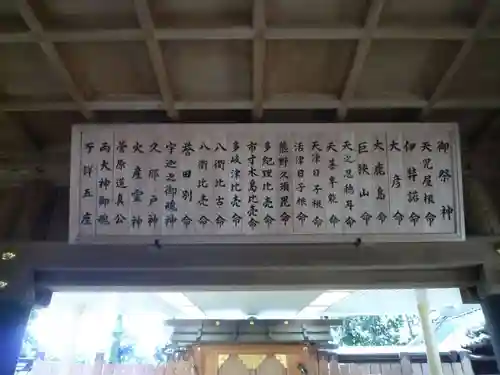 御祭神
天児屋根命
伊弉諾命
大彦命
大鹿島命
巨狭山命
天之忍穂耳命
天葺耶命
天津日子根命
活津日子根命
熊野久須毘命
多紀理比売命
市寸島比売命
多岐津比売命
八衢比古命
八衢比売命
誉田別命
宇迦之御魂神
久那戸神
火産霊神
菅原道真公
両大神御魂
不詳五座